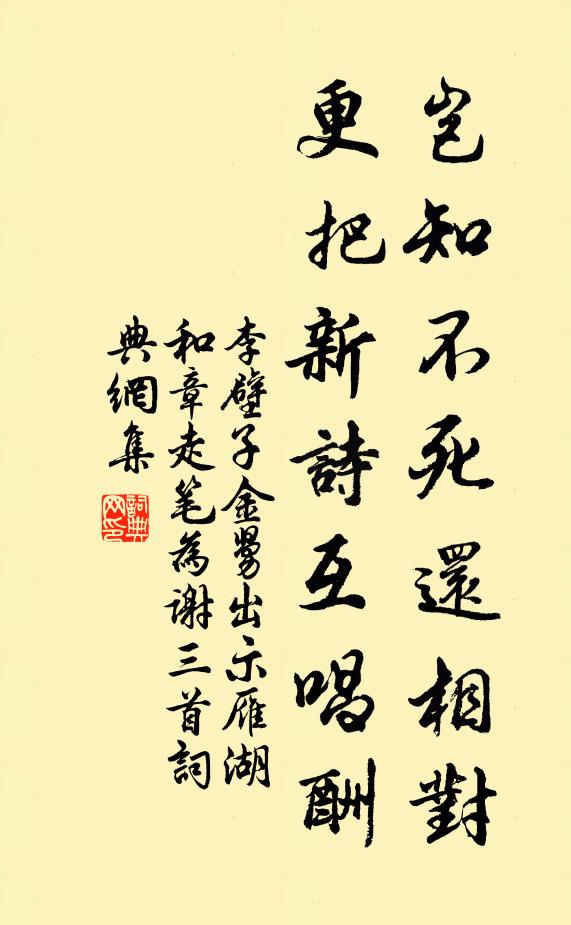 豈知不死還相對
更把新詩互唱酬
李壁子金舅出示雁湖
和章走笔為谢三首詞
典網集
詞典
网印